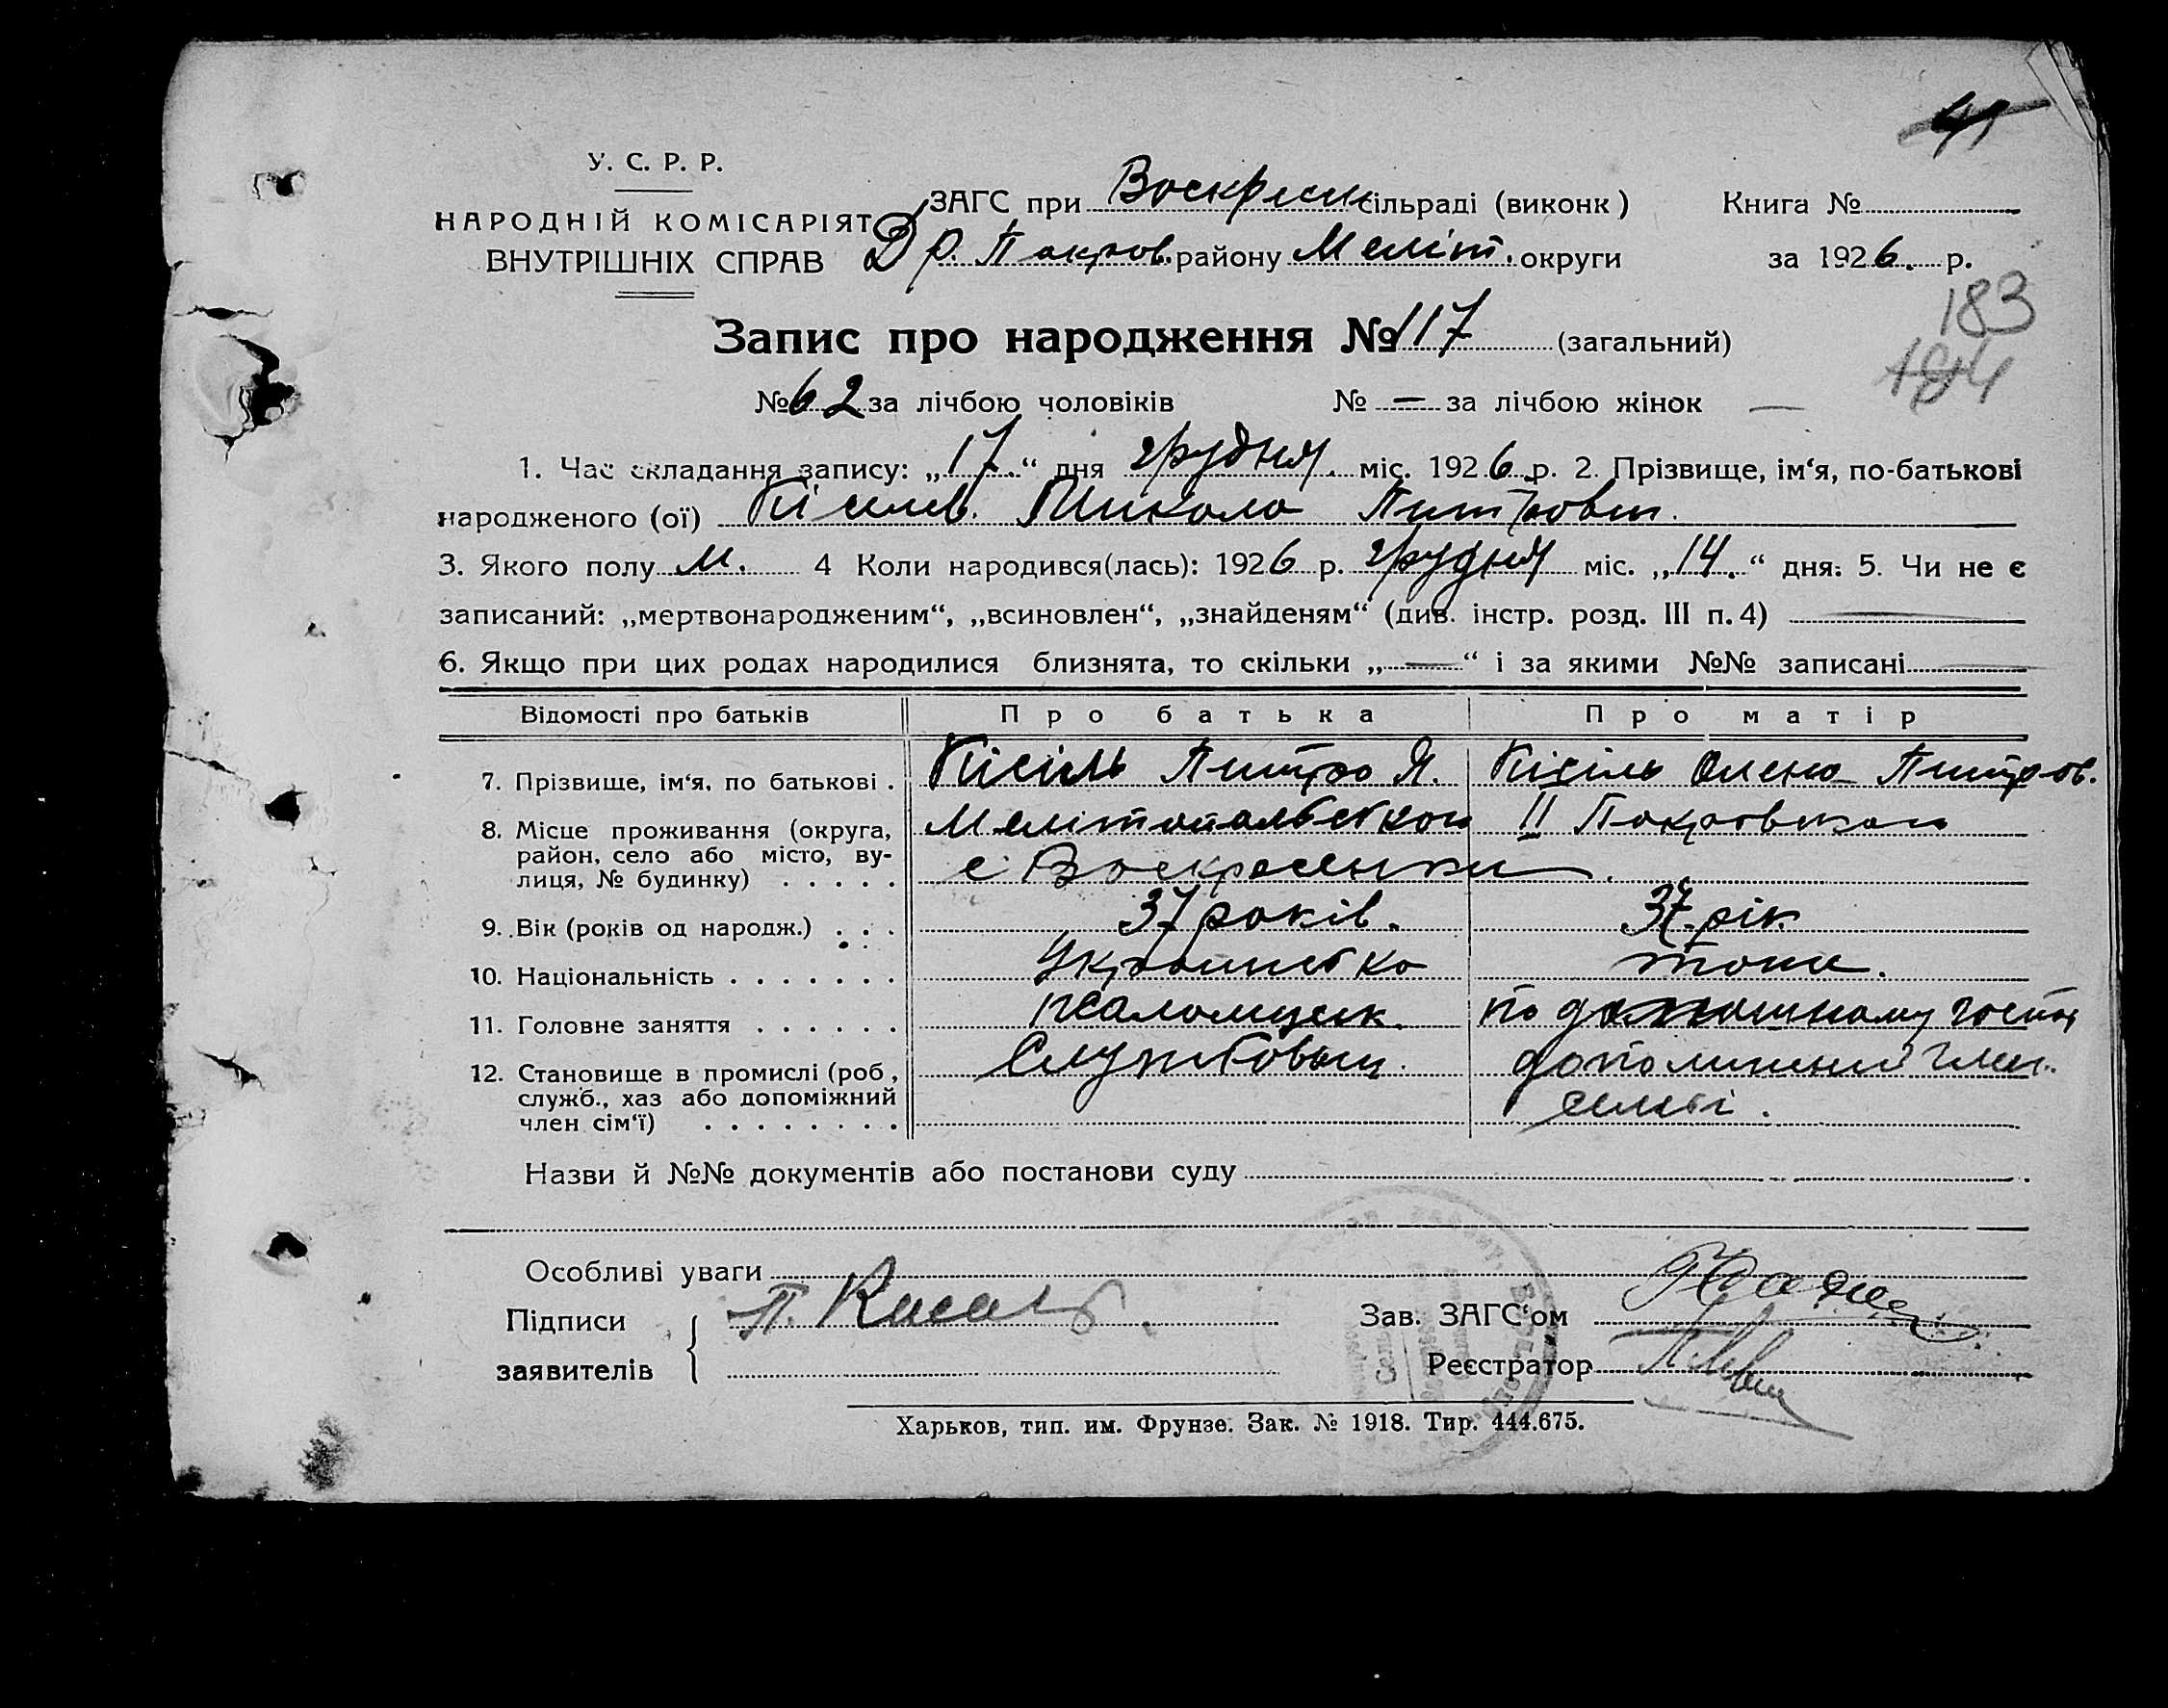 41
У. С. Р. Р.
НАРОДНІЙ КОМІСАРІЯТ
ВНУТРІШНІХ СПРАВ
ЗАГС при Воскресен сільраді (виконк)
Др. Покров. району Меліт. округи
Книга №
за 1926. р.
183
184
Запис про народження № 117 (загальний)
№ 62 за лічбою чоловіків № — за лічбою жінок —
1. Час складання запису: „17.“ дня грудня. міс. 1926 р. 2. Прізвище, ім‘я, по-батькові
народженого (ої) Микола
3. Якого полу м. 4 Коли народився(лась): 1926 р. грудня міс. „14.“ дня. 5. Чи не є
записаний: „мертвонародженим“, „всиновлен“, „знайденям“ (див. інстр. розд. III п. 4) —
6. Якщо при цих родах народилися близнята, то скільки „—“ і за якими №№ записані —
Відомості про батьків Про батька Про матір
7. Прізвище, ім‘я, по батькові . Кісіль Питро Я. Кісіль Олена Питров.
8. Місце проживання (округа, район, село або місто, вулиця, № будинку) . . . . . Мелітопольськой II Покровського
с Воскресенки.
9. Вік (років од народж.) . . . 37 років. 37 рік
10. Національність . . . . . . .
11. Головне заняття . . . . . . псаломщик. по домошньому госпо
12. Становище в промислі (роб, служб., хаз або допоміжний член сім‘ї) . . . . . . . . член.
Назви й №№ документів або постанови суду
Особливі уваги
Підписи
заявителів
П. Кисель
Зав. ЗАГС‘ом
Реєстратор
Харьков, тип. им. Фрунзе. Зак. № 1918. Тир. 444.675.